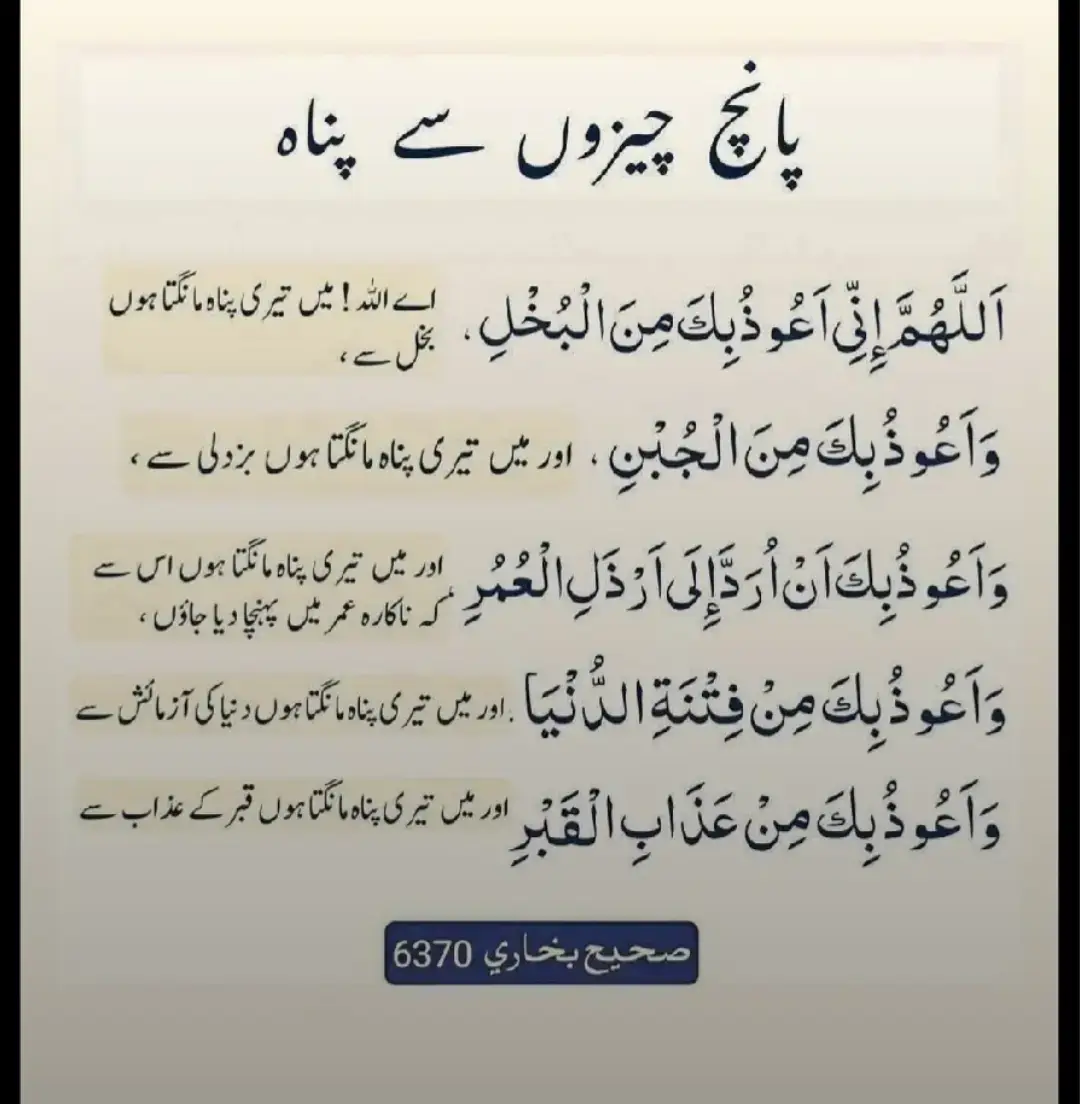 پانچ چیزوں سے پناہ
اَللَّهُمَّ إِنِّي اَعُوذُبِكَ مِنَ الْبُخْلِ،
اے اللہ! میں تیری پناہ مانگتا ہوں
بخل سے،
وَاَعُوذُبِكَ مِنَ الْجُبْنِ،
اور میں تیری پناہ مانگتا ہوں بزدلی سے،
وَاَعُوذُبِكَ اَنْ اُرَدَّ إِلَى اَرْذَلِ الْعُمُرِ
اور میں تیری پناہ مانگتا ہوں اس سے
کہ ناکارہ عمر میں پہنچا دیا جاؤں،
وَاَعُوذُبِكَ مِنْ فِتْنَةِ الدُّنْيَا
اور میں تیری پناہ مانگتا ہوں دنیا کی آزمائش سے
وَاَعُوذُبِكَ مِنْ عَذَابِ الْقَبْرِ
اور میں تیری پناہ مانگتا ہوں قبر کے عذاب سے
صحيح بخاري 6370